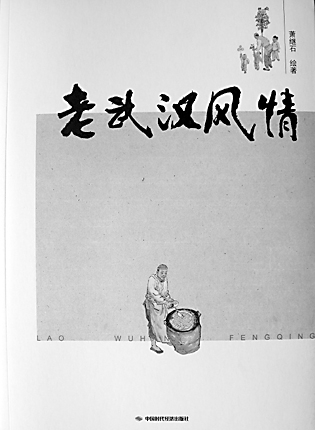 萧继石 绘著
老武汉风情
LAO WUH FENGQING
中国时代经济出版社